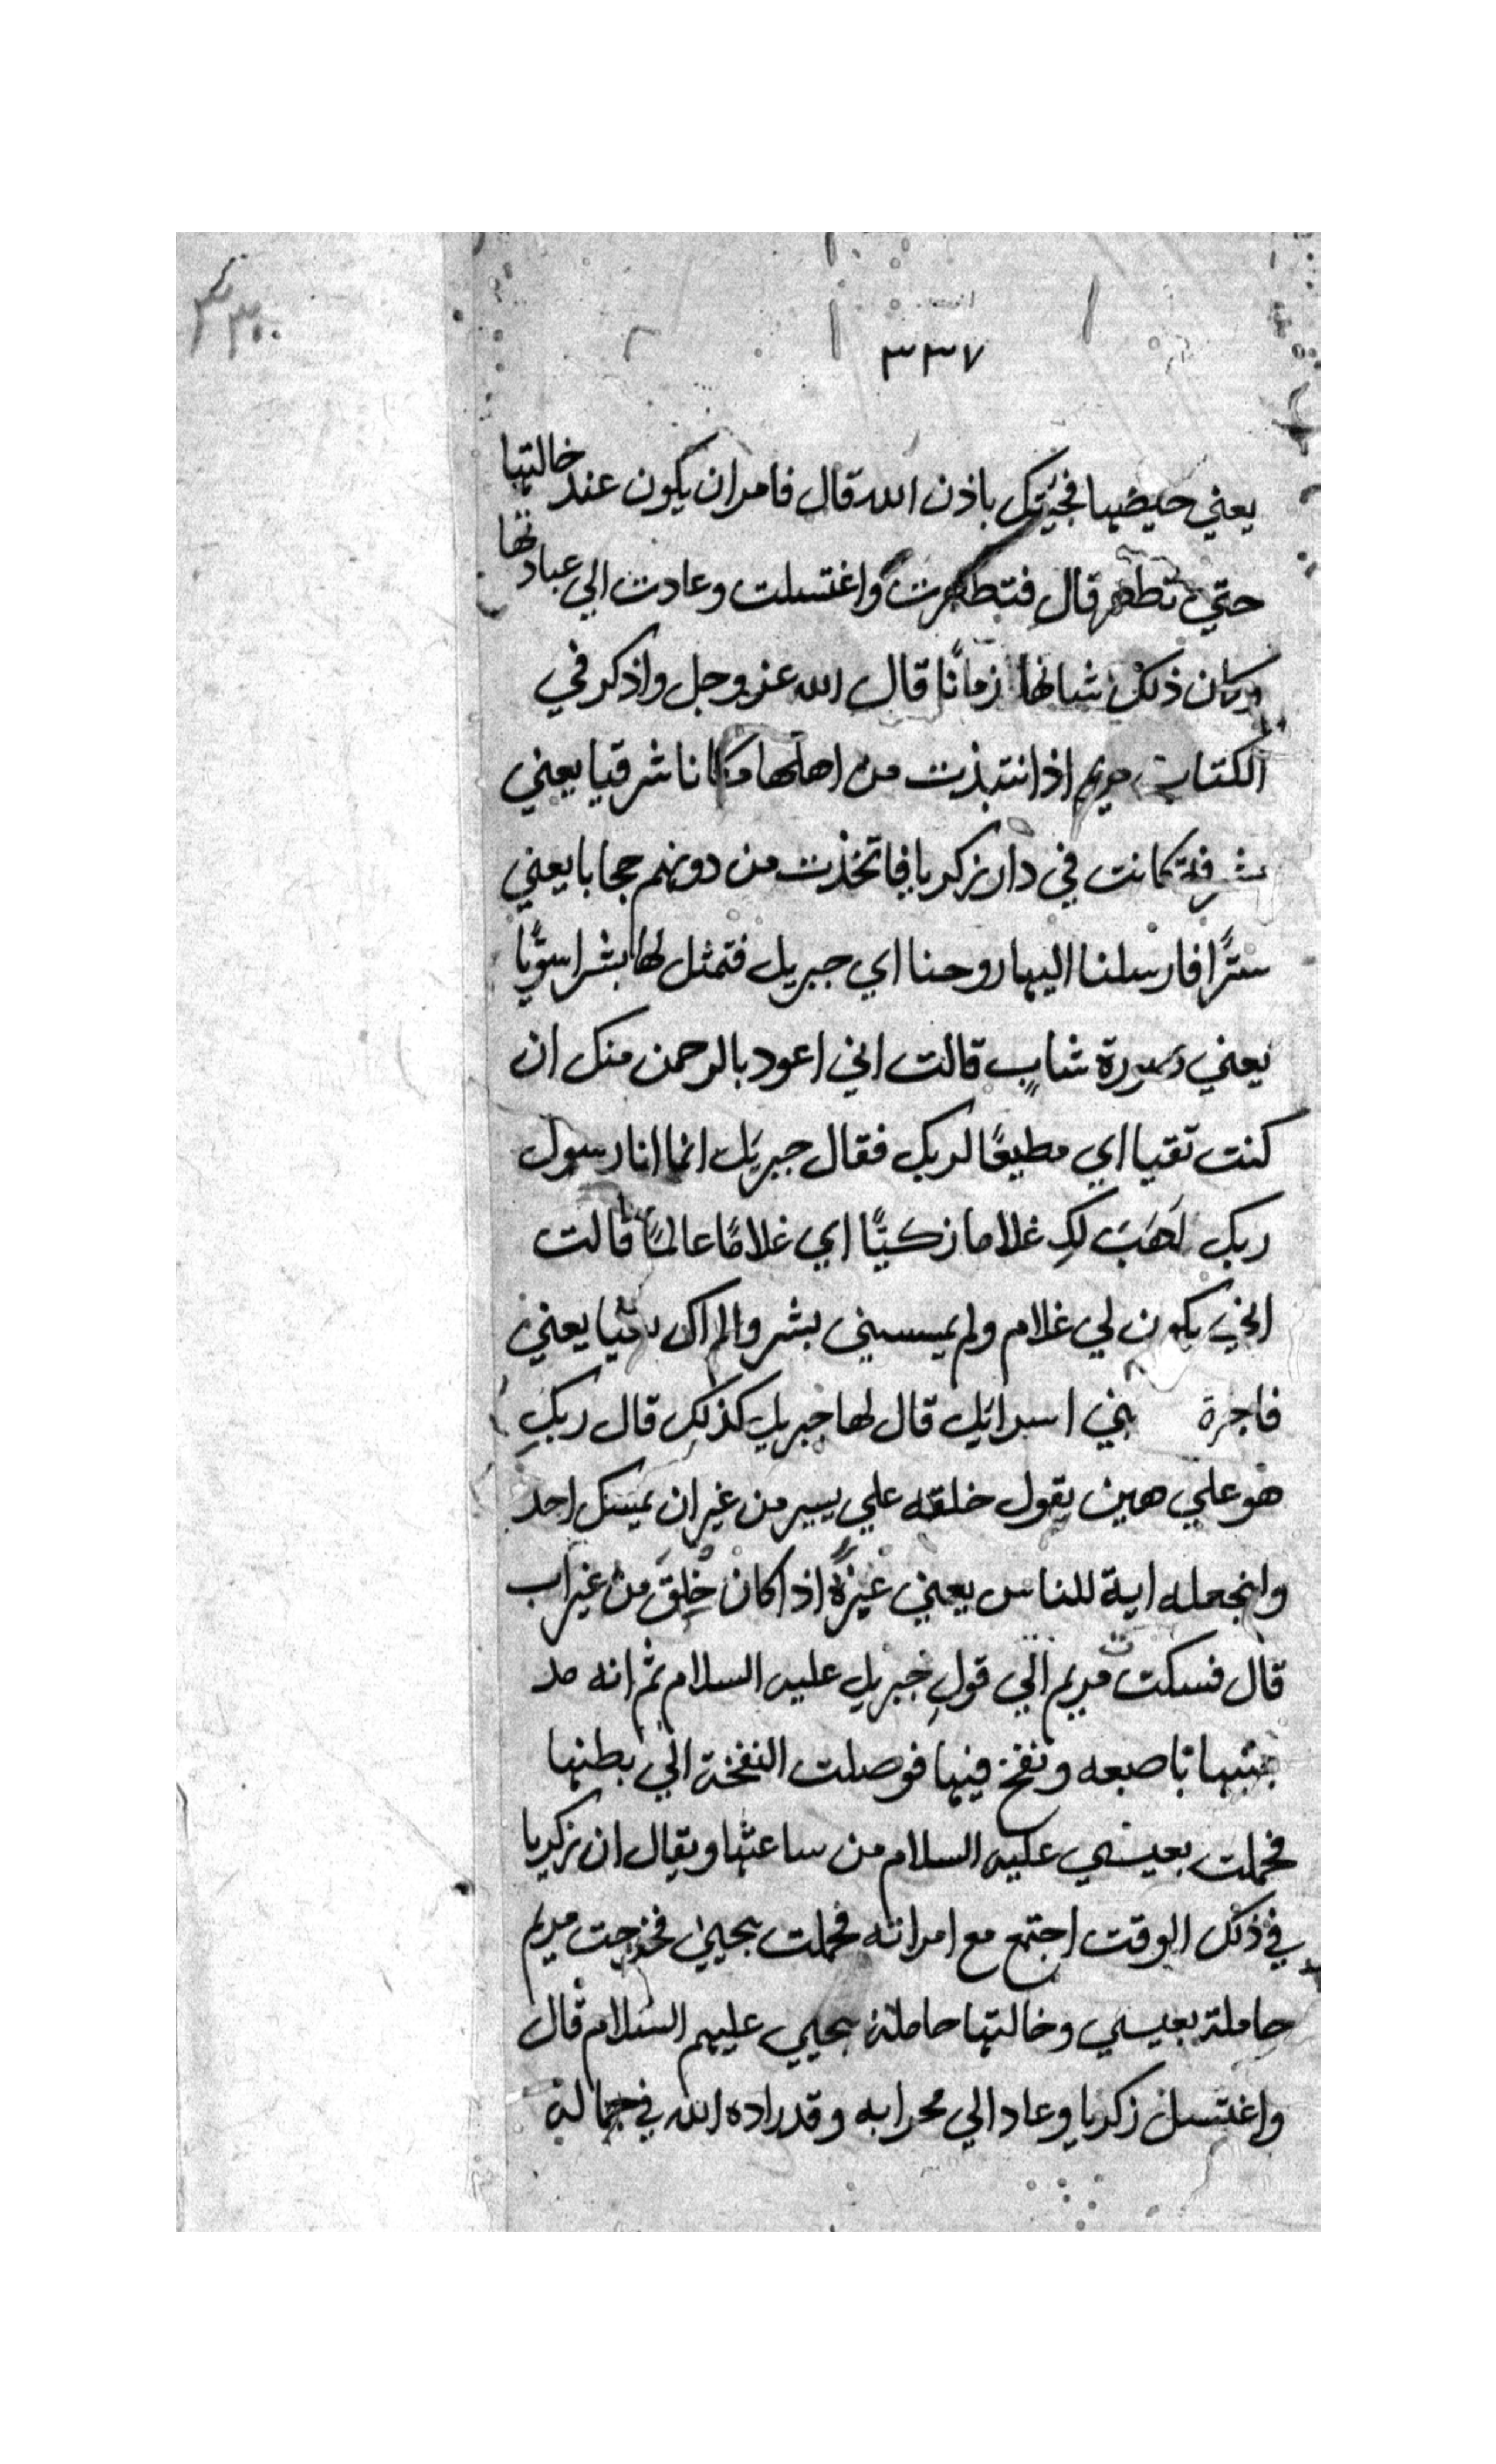 ٣٣٧
يعني حيضها فجيتك باذن الله قال فامر ان يكون عند خالتها
حتي تطهر قال فتطهرت واغتسلت وعادت الي عبادتها
وكان ذلك شانها زمانًا قال الله عز وجل واذكر في
الكتاب مريم اذ انتبذت من اهلها مكانا شرقيا يعني
مشرفة كانت في دار زكريا فاتخذت من دونهم حجابا يعني
سترًا فارسلنا اليها روحنا اي جبريل فتمثل لها بشرا سويًا
يعني صورة شاب قالت اني اعوذ بالرحمن منك ان
كنت تقيا اي مطيعًا لربك فقال جبريل انما انا رسول
ربك لاهب لكِ غلاما زكيًا اي غلامًا عالمًا قالت
اني يكون لي غلام ولم يمسسني بشر ولم اك بغيا يعني
فاجرة بني اسرائيل قال لها جبريل كذلكِ قال ربكِ
هو علي هين يقول خلقه علي يسير من غير ان يمسك احد
ولنجعله اية للناس يعني عبرةً اذا كان خُلِقَ من غير اب
قال فسكت مريم الي قول جبريل عليه السلام ثم انه مد
جيبها باصبعه ونفخ فيها فوصلت النفخة الي بطنها
فحملت بعيسي عليه السلام من ساعتها ويقال ان زكريا
في ذلك الوقت اجتمع مع امراته فحملت بيحيي فخرجت مريم
حاملة بعيسي وخالتها حاملة بيحيي عليهم السلام قال
واغتسل زكريا وعاد الي محرابه وقد زاده الله في جماله